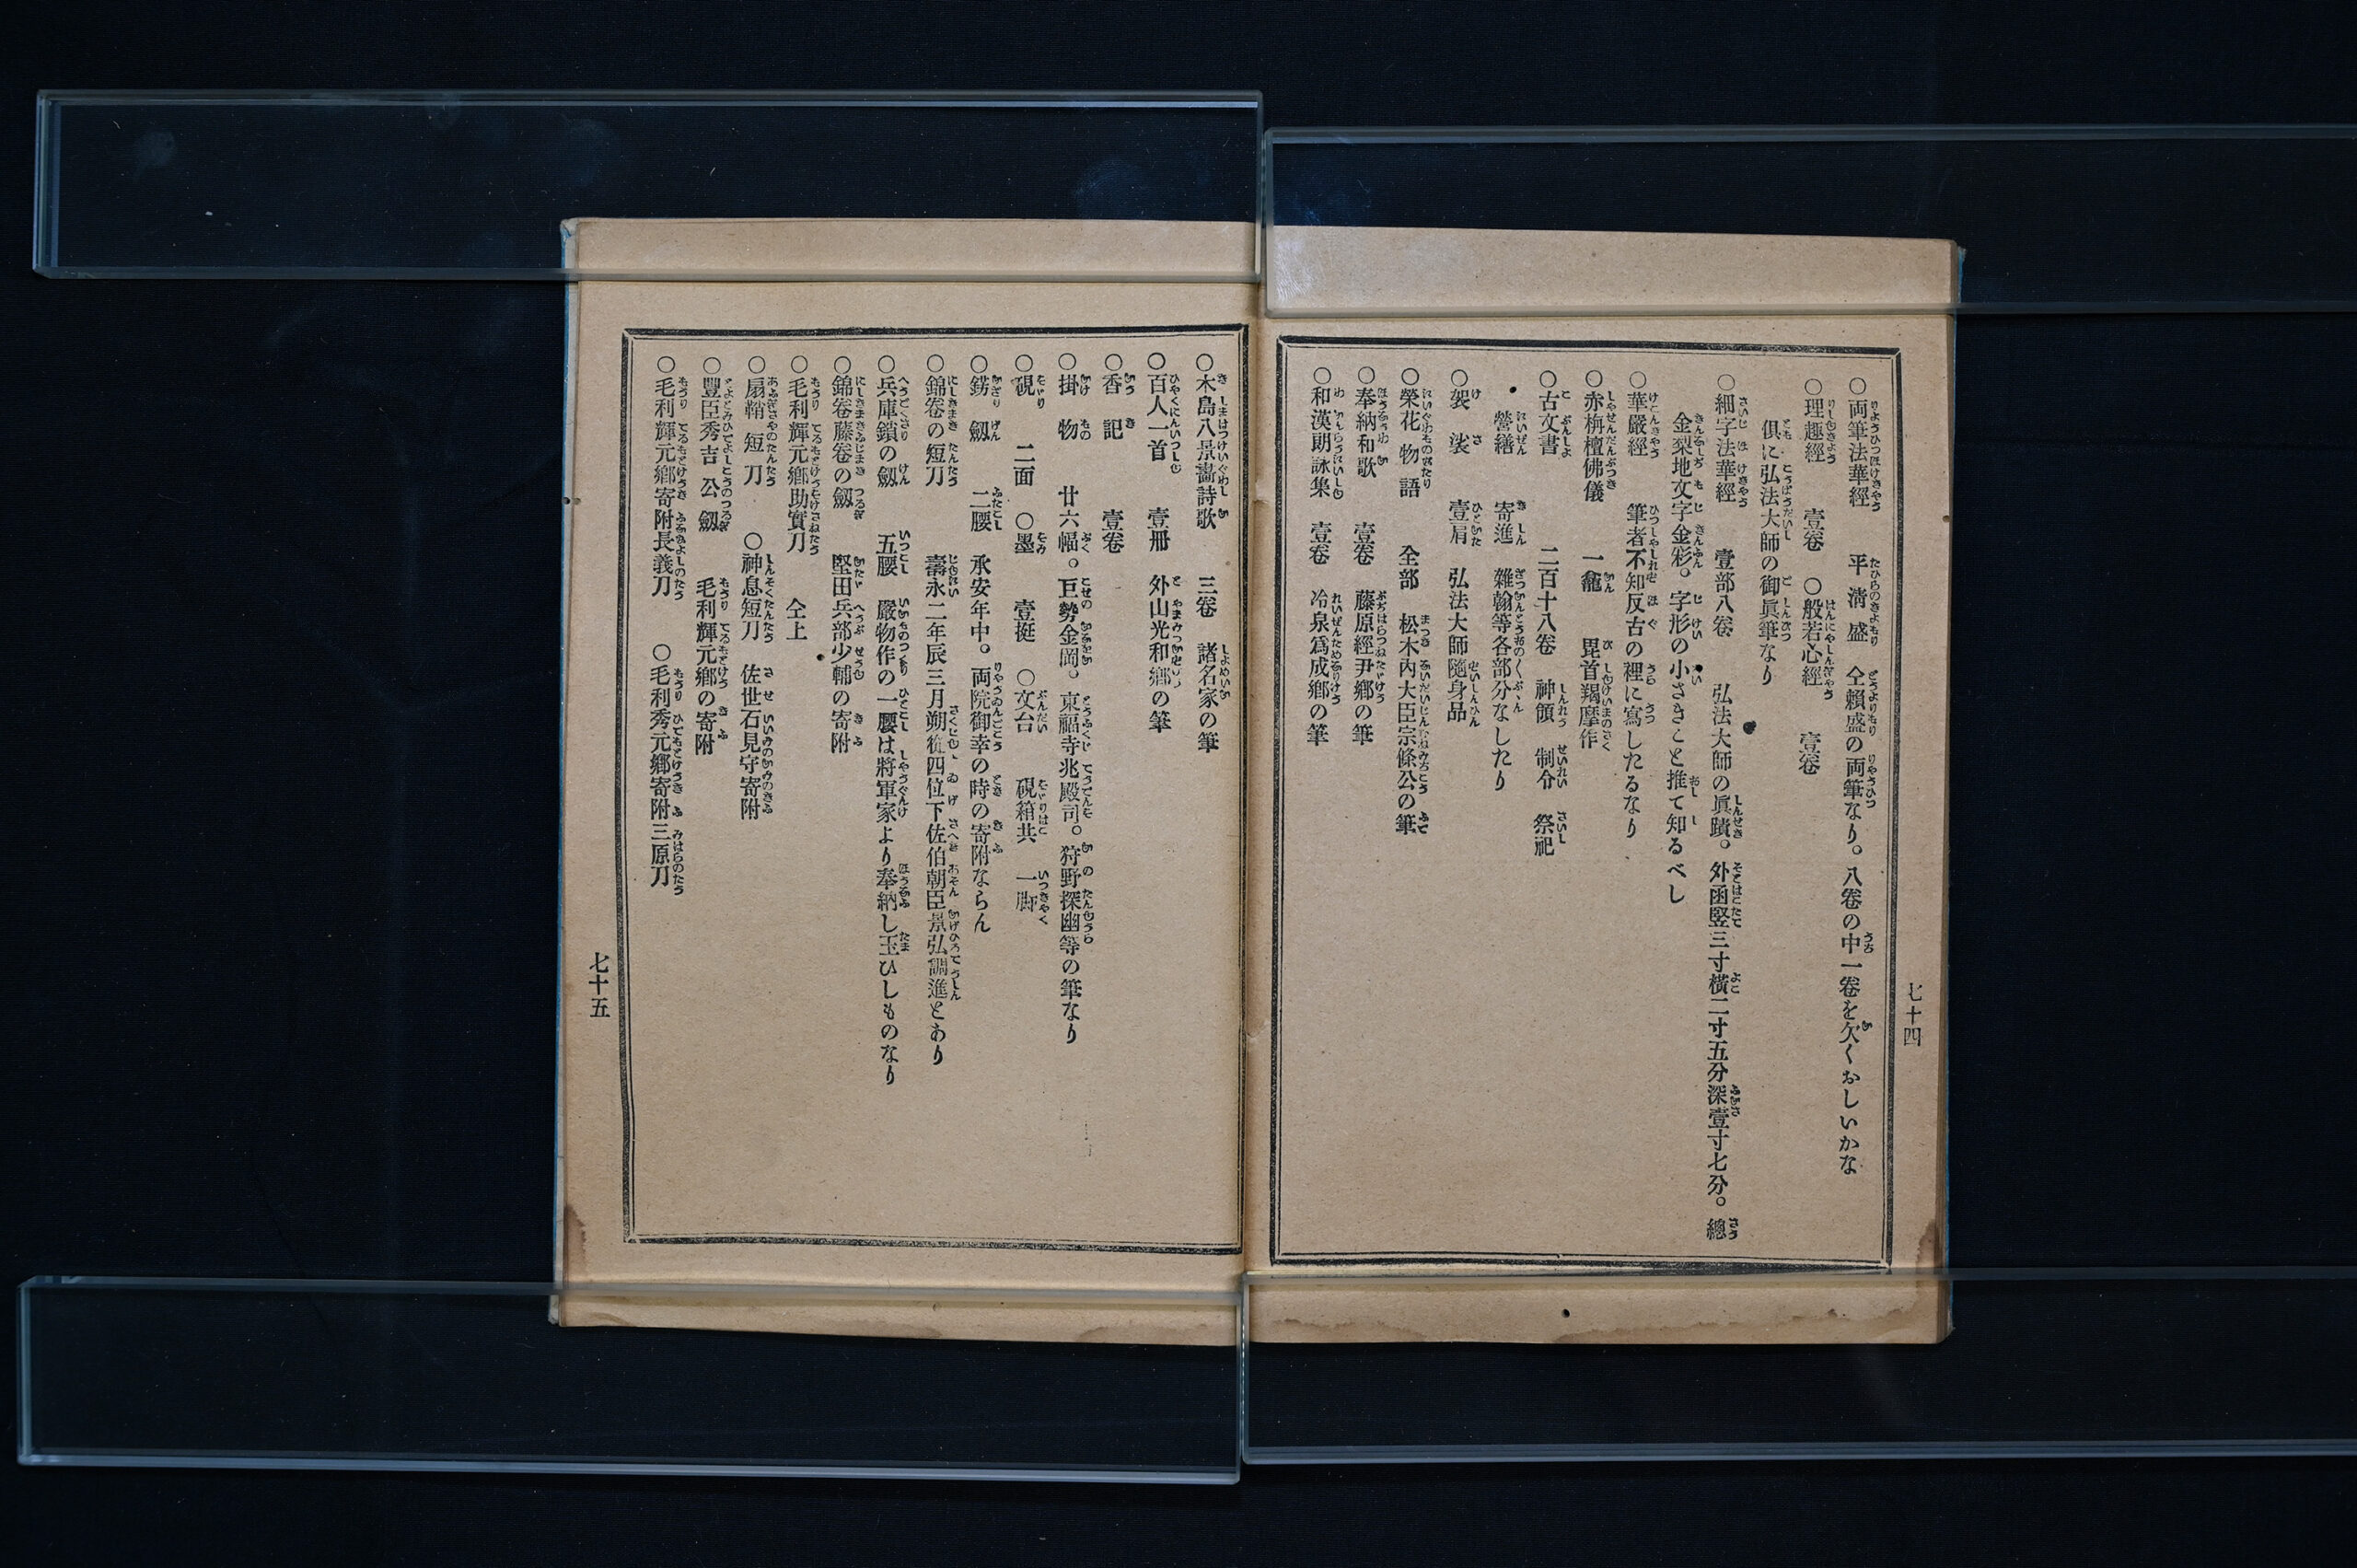 ○両筆法華經　平清盛　仝賴盛の両筆なり。八卷の中一卷を欠くおしいかな
○理趣經　壹卷　○般若心經　壹卷
倶に弘法大師の御眞筆なり
○細字法華經　壹部八卷　弘法大師の眞蹟。外函竪三寸橫二寸五分深壹寸七分。總
金梨地文字金彩。字形の小さきこと推て知るべし
○華嚴經　筆者不知反古の裡に寫したるなり
○赤栴檀佛儀　一龕　毘首羯摩作
○古文書　二百十八卷　神領　制令　祭祀
營繕　寄進　雜翰等各部分なしたり
○袈裟　壹肩　弘法大師隨身品
○榮花物語　全部　松木內大臣宗條公の筆
○奉納和歌　壹卷　藤原經尹鄕の筆
○和漢朗詠集　壹卷　冷泉爲成鄕の筆
七十四
○木島八景畵詩歌　三卷　諸名家の筆
○百人一首　壹册　外山光和鄕の筆
○香記　壹卷
○掛物　廿六幅。巨勢金岡。東福寺兆殿司。狩野探幽等の筆なり
○硯　二面　○墨　壹挺　○文台　硯箱共　一脚
○錺劔　二腰　承安年中。両院御幸の時の寄附ならん
○錦卷の短刀　壽永二年辰三月朔從四位下佐伯朝臣景弘調進とあり
○兵庫鎖の劔　五腰　嚴物作の一腰は將軍家より奉納し玉ひしものなり
○錦卷藤卷の劔　堅田兵部少輔の寄附
○毛利輝元鄕助實刀　仝上
○扇鞘短刀　○神息短刀　佐世石見守寄附
○豐臣秀吉公劔　毛利輝元鄕の寄附
○毛利輝元鄕寄附長義刀　○毛利秀元鄕寄附三原刀
七十五